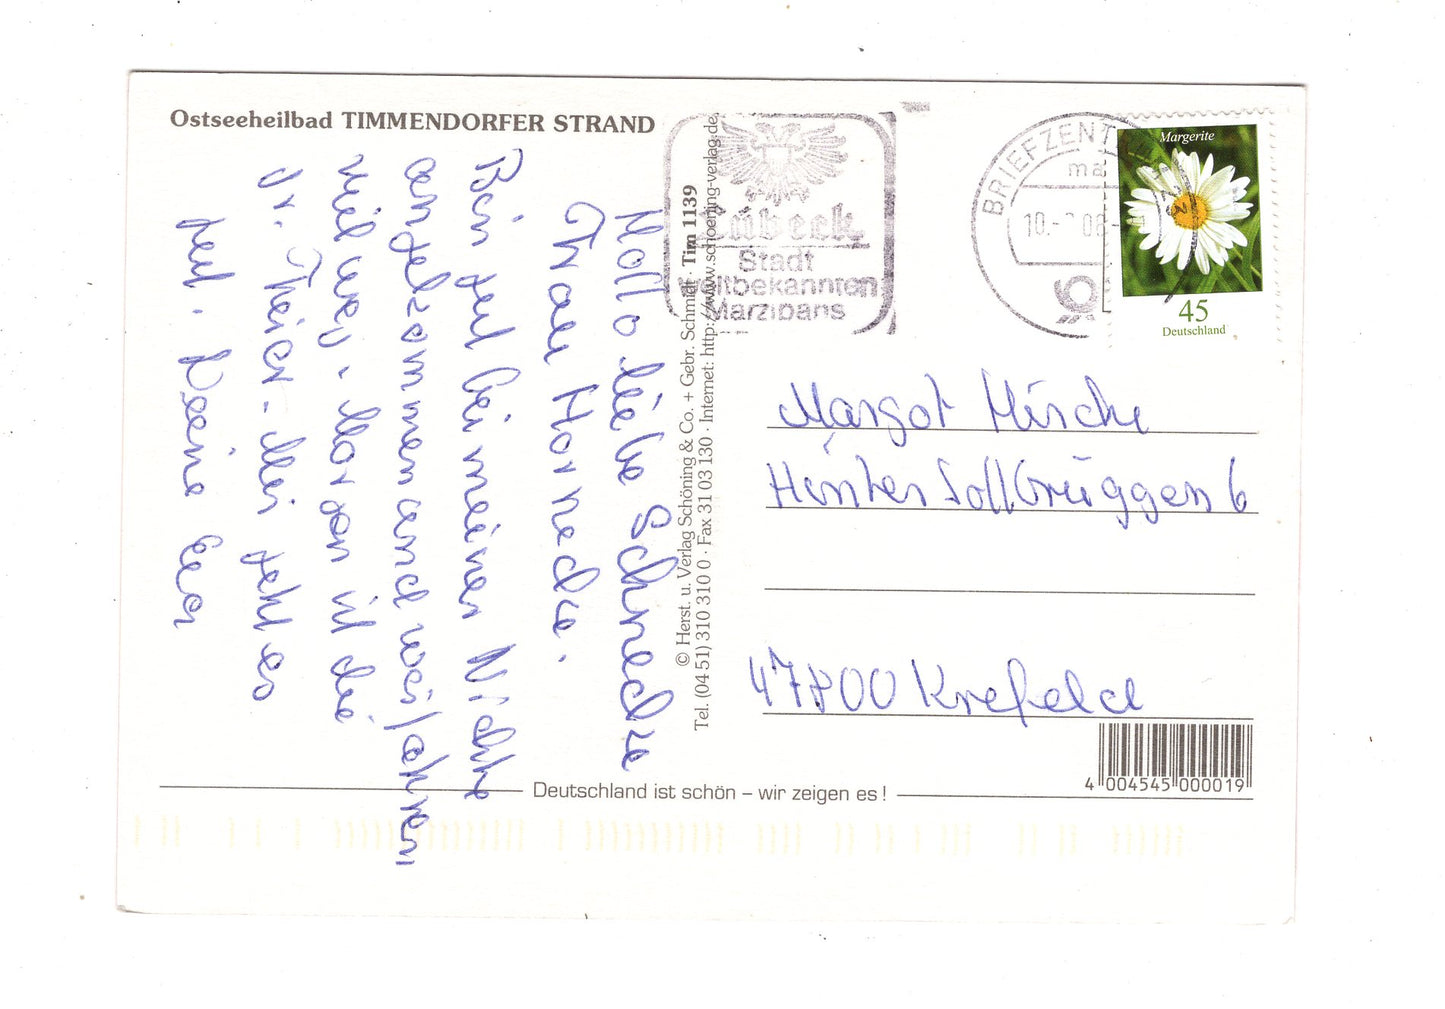 Ostseeheilbad TIMMENDORFER STRAND
Hallo liebe Schnecke
Frau Hornecke.
Bin gut bei meiner Nichte
angekommen und wir fahren
viel weg. Morgen ist die
dr. Feier. Mir geht es
gut. Deine
© Herst. u. Verlag Schöning & Co. + Gebr. Schmidt · Tim 1139
Tel. (04 51) 310 310 0 · Fax 31 03 130 · Internet: http://www.schoening-verlag.de
Lübeck
Stadt
weltbekannten
Marzipans
BRIEFZENT
ma
10.- 08-
Margerite
45
Deutschland
Margot Hirche
Hinter Sollbrüggen 6
47800 Krefeld
4 004545 000019
Deutschland ist schön – wir zeigen es !